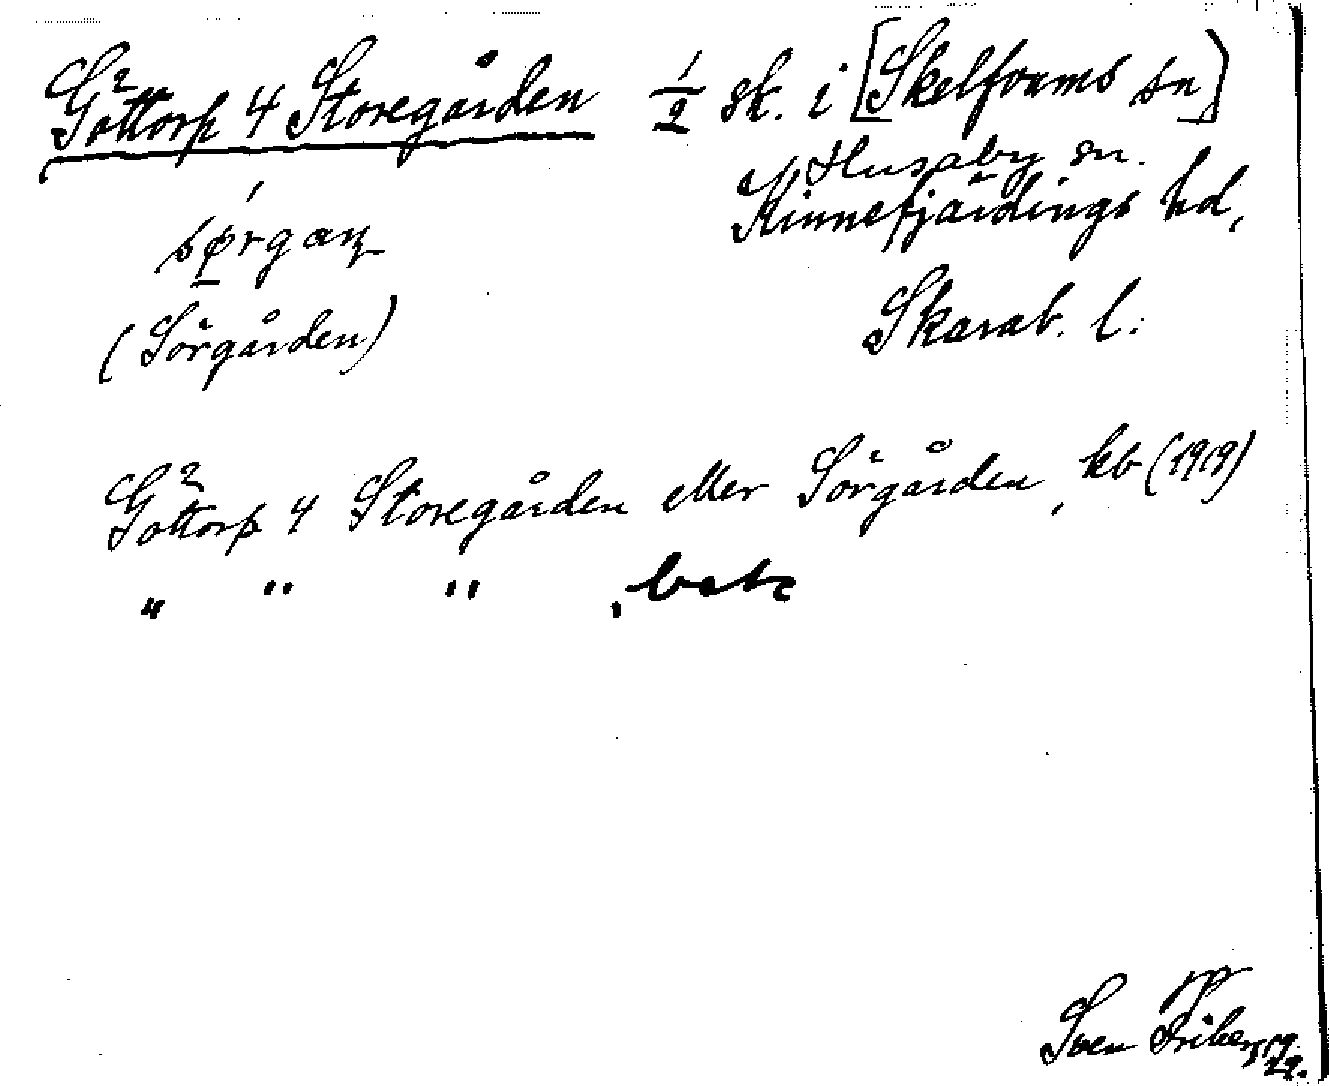 Göttorp 4 Storegården 1/2 sk. i [Skelfvums sn]
Husaby sn.
Kinnefjärdings hd,
sørgaṇ
Skarab. l.
(Sörgården)
Göttorp 4 Storegården eller Sörgården, kb (1919)
" " " ,
Sven Friberg 19
29.